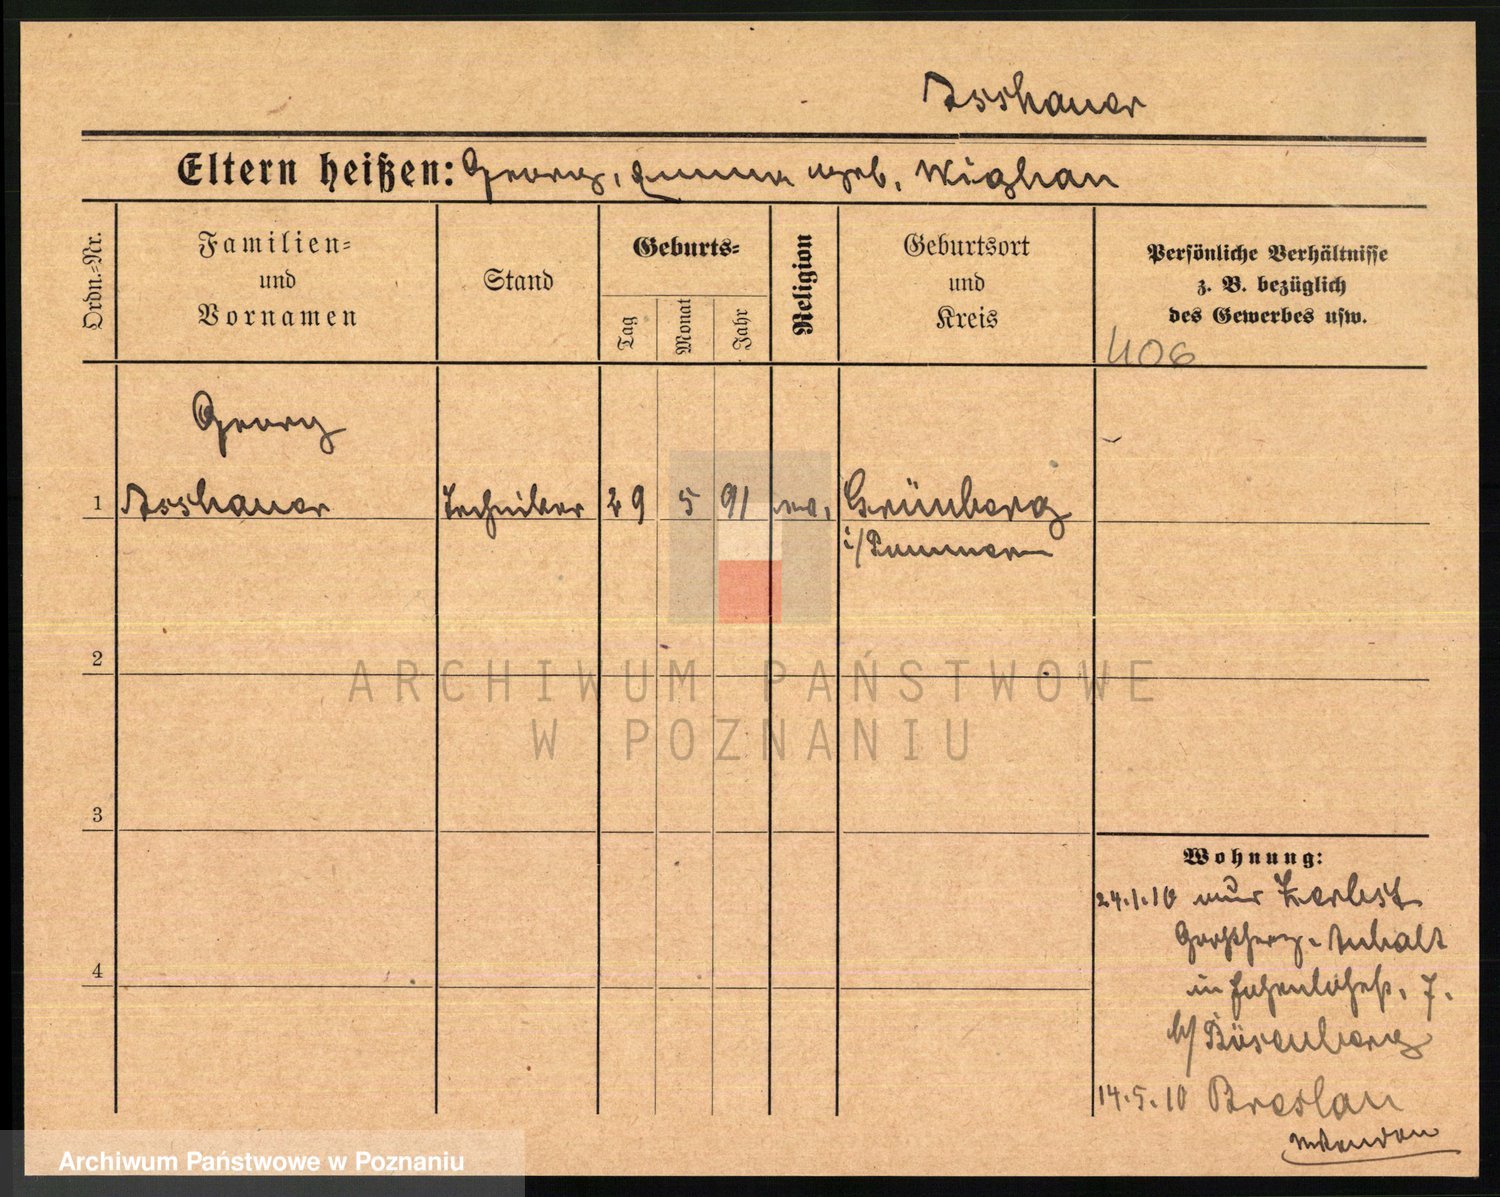 Asshauer
Eltern heißen: Georg, Emma geb. Wighan
Ordn.=Nr.
Familien=
und
Vornamen
Stand
Geburts=
Tag
Monat
Jahr
Religion
Geburtsort
und
Kreis
Persönliche Verhältnisse
z. B. bezüglich
des Gewerbes usw.
406
Georg
1 Asshauer Techniker 29 5 91 ev. Grünberg
i/Pommern
2
3
4
Wohnung:
24.1.10 Zerbst
Anhalt
7.
b/ Büsenberg
14.5.10 Breslau
ARCHIWUM PAŃSTWOWE
W POZNANIU
Archiwum Państwowe w Poznaniu